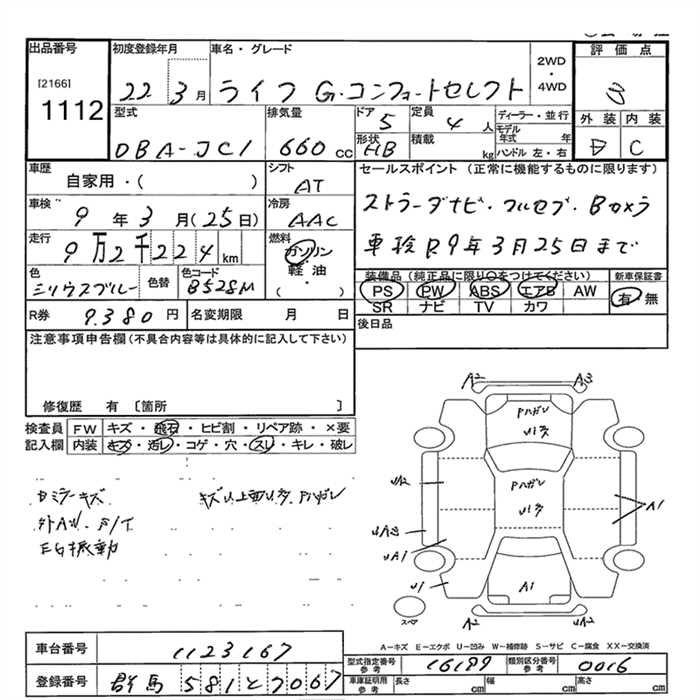 出品番号
[2166]
1112
初度登録年月
22 3月
車名・グレード
ライフ G・コンフォートセレクト
2WD
・
4WD
評価点
型式
DBA-JC1
排気量
660 cc
ドア
5
定員
4 人
形状
HB
積載
kg
ディーラー・並行
モデル年式 年
ハンドル 左・右
外装 内装
C
車歴
自家用・( )
シフト
AT
車検
9 年 3 月(25日)
冷房
AAC
走行
9万2千224km
燃料
ガソリン
軽油
( ・ )
色
ミリウスブルー
色替
色コード
B528M
R券
9,380 円
名変期限 月 日
セールスポイント (正常に機能するものに限ります)
ストラーダナビ・フルセブ・Bカメラ
車検R9年3月25日まで
装備品(純正品に限り○をつけてください)
PS PW ABS エアB AW
SR ナビ TV カワ
新車保証書
有・無
後日品
注意事項申告欄(不具合内容等は具体的に記入して下さい)
修復歴 有 〔箇所 〕
検査員記入欄
FW キズ・飛石・ヒビ割・リペア跡・×要
内装 キズ・汚レ・コゲ・穴・スレ・キレ・破レ
ミラーキズ
EG振動
A2 A3
Pハガレ
Pハガレ
A1
A1
U1
A2 A2
スペア
A-キズ E-エクボ U-凹み W-補修跡 S-サビ C-腐食 XX-交換済
車台番号
1123167
登録番号
群馬 581 と 7067
型式指定番号 参考
16187
類別区分番号 参考
0016
車庫証明用 参考
長さ cm 幅 cm 高さ cm